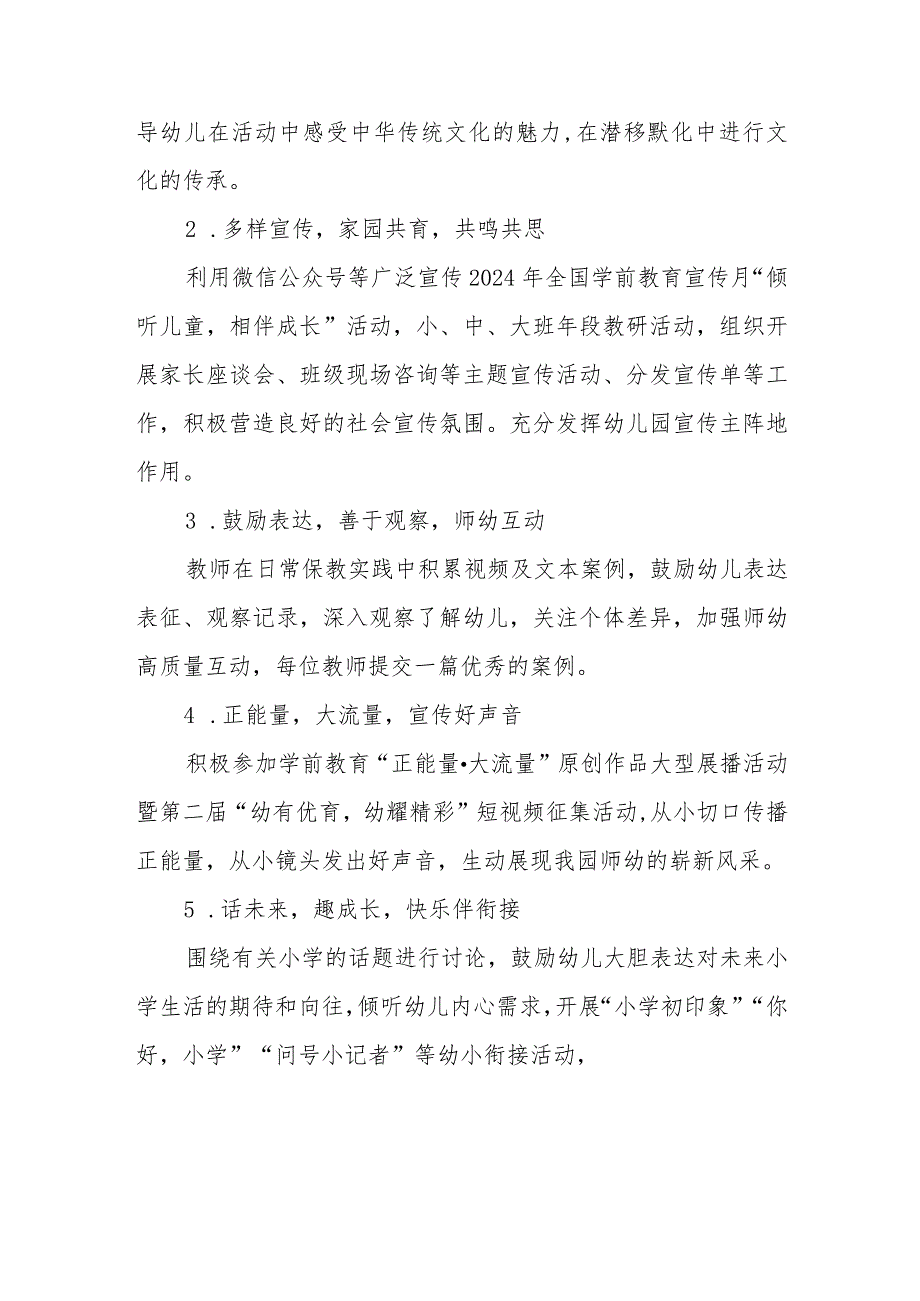 导幼儿在活动中感受中华传统文化的魅力,在潜移默化中进行文
化的传承。
2 .多样宣传，家园共育，共鸣共思
利用微信公众号等广泛宣传 2024 年全国学前教育宣传月“倾
听儿童，相伴成长”活动，小、中、大班年段教研活动，组织开
展家长座谈会、班级现场咨询等主题宣传活动、分发宣传单等工
作，积极营造良好的社会宣传氛围。充分发挥幼儿园宣传主阵地
作用。
3 .鼓励表达，善于观察，师幼互动
教师在日常保教实践中积累视频及文本案例，鼓励幼儿表达
表征、观察记录，深入观察了解幼儿，关注个体差异，加强师幼
高质量互动，每位教师提交一篇优秀的案例。
4 .正能量，大流量，宣传好声音
积极参加学前教育“正能量•大流量”原创作品大型展播活动
暨第二届“幼有优育，幼耀精彩”短视频征集活动,从小切口传播
正能量，从小镜头发出好声音，生动展现我园师幼的崭新风采。
5 .话未来，趣成长，快乐伴衔接
围绕有关小学的话题进行讨论，鼓励幼儿大胆表达对未来小
学生活的期待和向往,倾听幼儿内心需求,开展“小学初印象”“你
好，小学”“问号小记者”等幼小衔接活动，